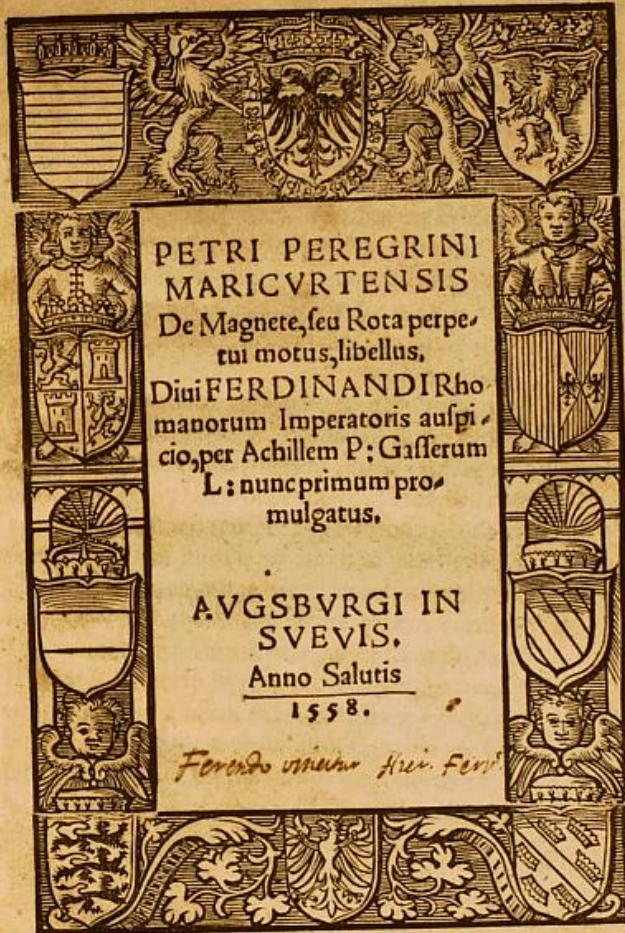 PETRI PEREGRINI
MARICVRTENSIS
De Magnete, seu Rota perpe-
tui motus, libellus.
Diui FERDINANDI Rho
manorum Imperatoris auspi-
cio, per Achillem P: Gasserum
L: nunc primum pro-
mulgatus.
AVGSBVRGI IN
SVEVIS.
Anno Salutis
1558.
Ferendo vincitur Hier.